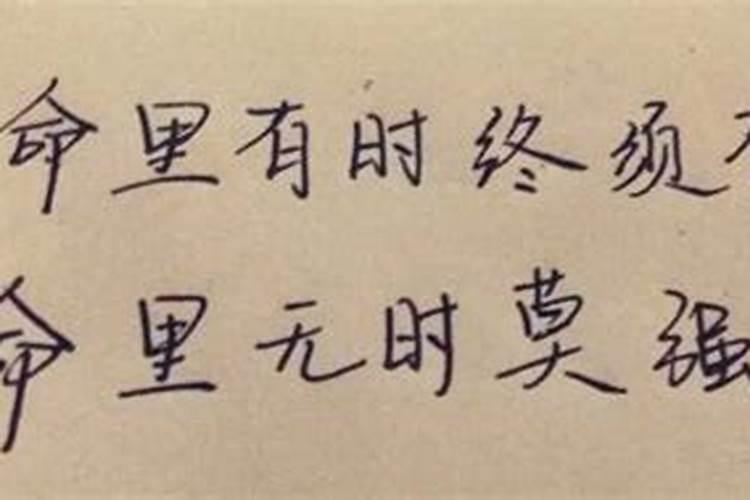 命里有时终须
命里无时莫强